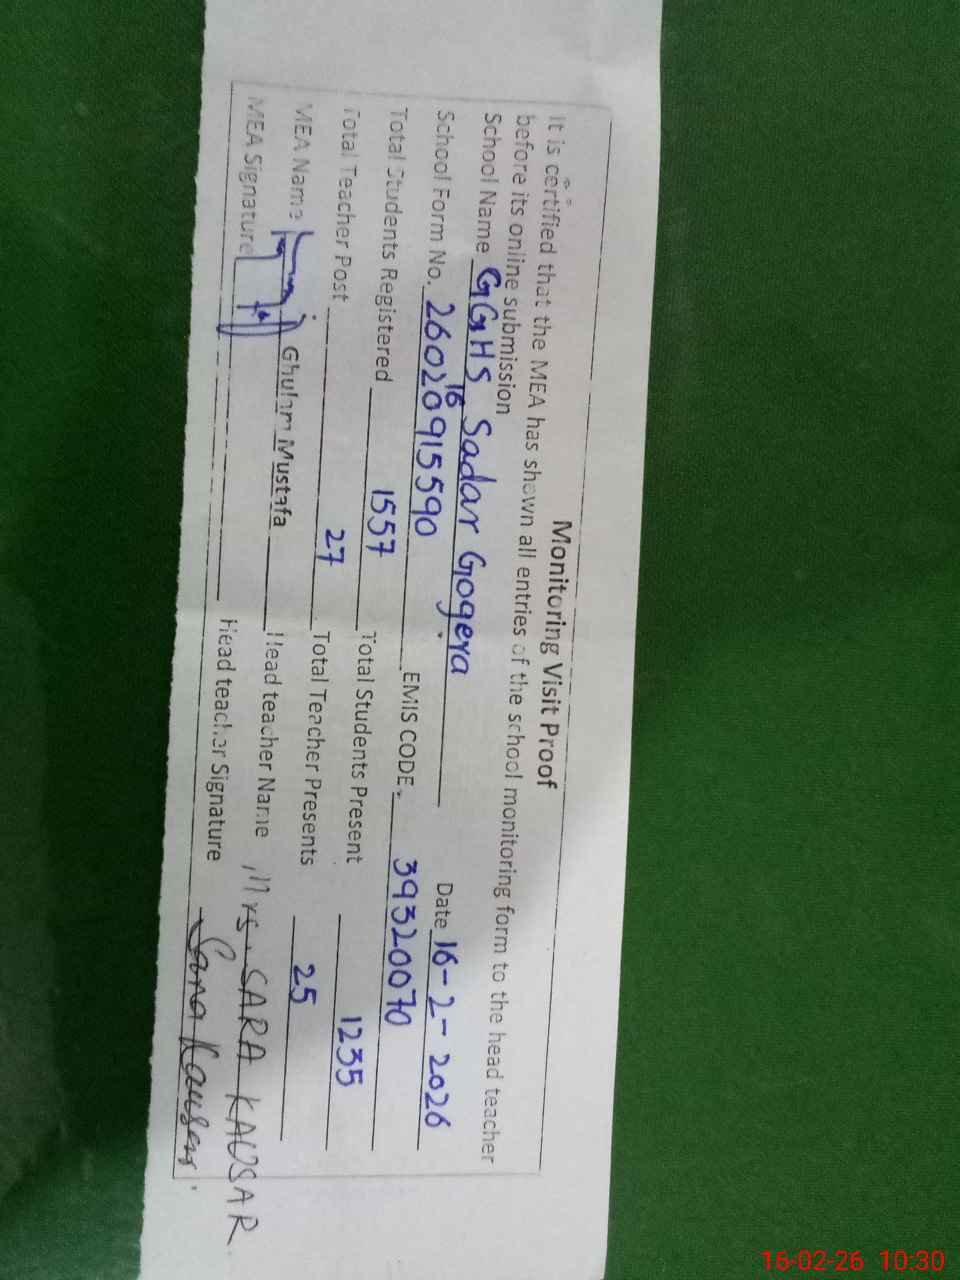 Monitoring Visit Proof
It is certified that the MEA has shown all entries of the school monitoring form to the head teacher
before its online submission
School Name GGHS Sadar Gogera Date 16-2-2026
16
School Form No. 26020915590 EMIS CODE. 39320070
Total Students Registered 1557 Total Students Present 1235
Total Teacher Post 27 Total Teacher Presents 25
MEA Name Ghulam Mustafa Head teacher Name Mrs. SARA KAUSAR
MEA Signature Head teacher Signature Sara Kausar
16-02-26 10:30